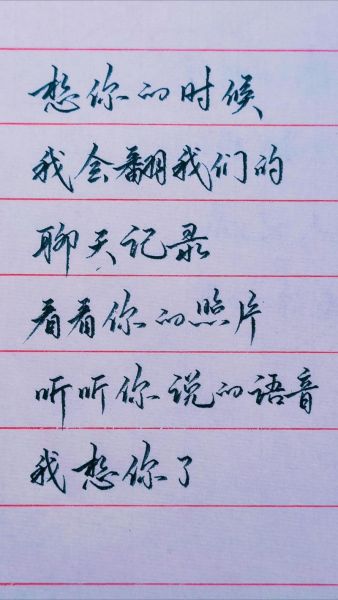 想你的时候
我会翻我们的
聊天记录
看看你的照片
听听你说的语音
我想你了